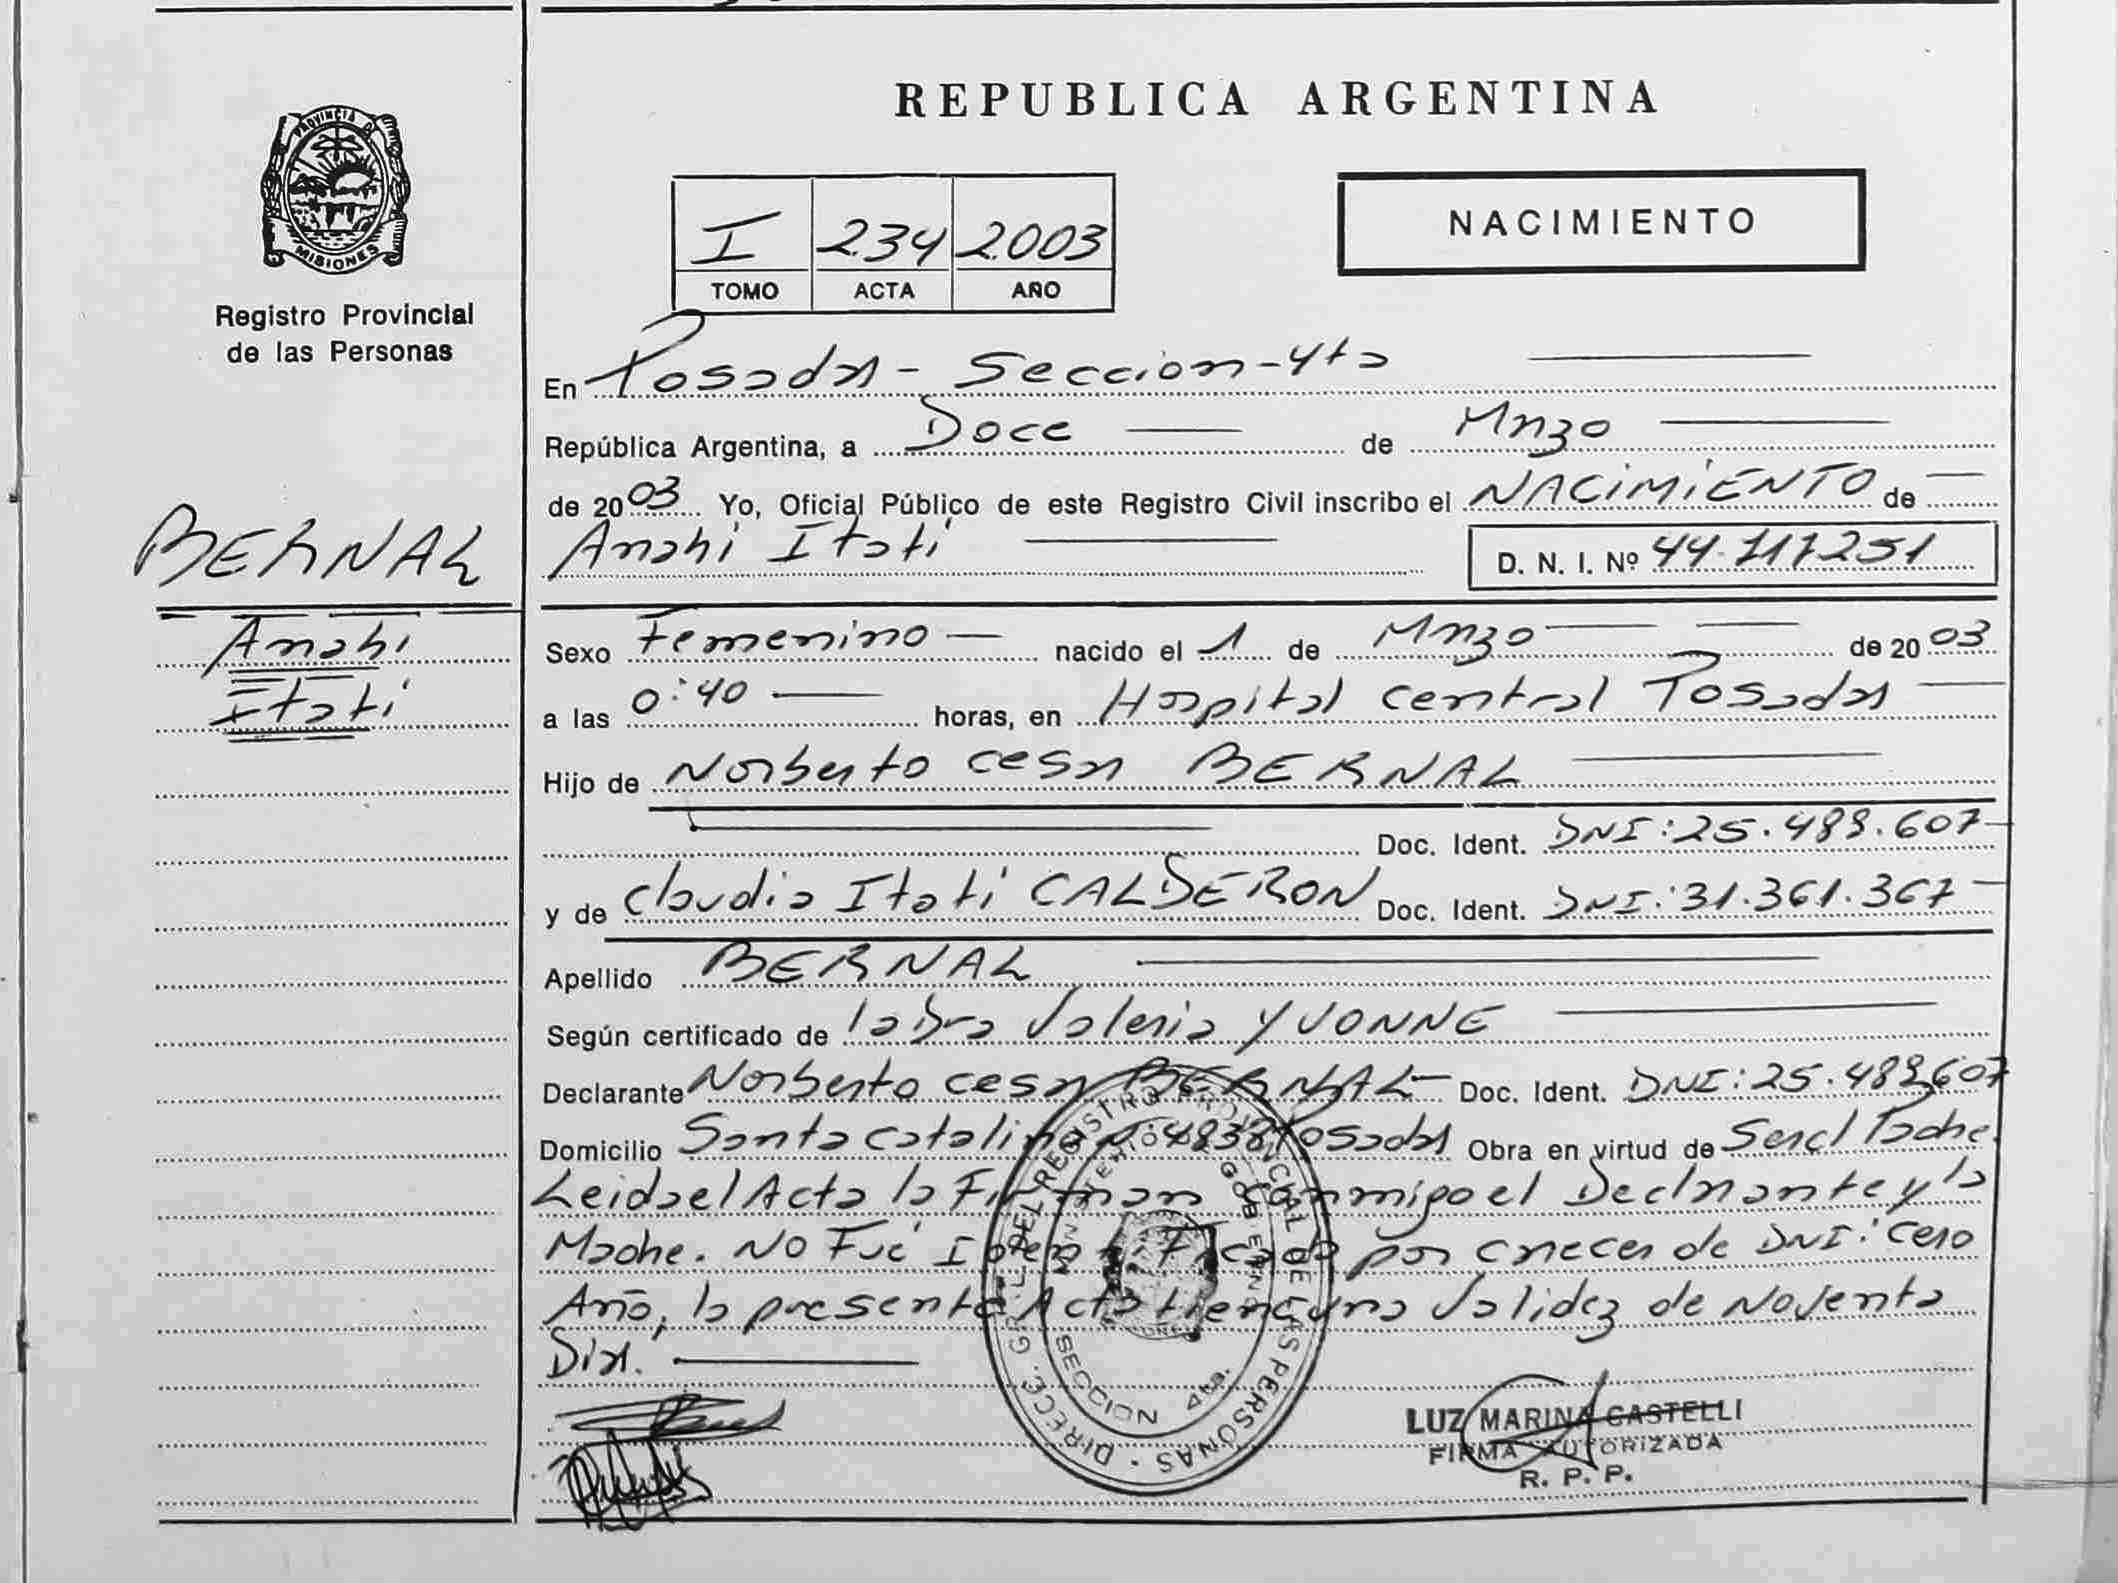 REPUBLICA ARGENTINA
PROVINCIA DE
MISIONES
Registro Provincial
de las Personas
I 234 2003
TOMO ACTA AÑO
NACIMIENTO
En Posadas - Seccion - 4ta
República Argentina, a Doce de Marzo
de 2003 Yo, Oficial Público de este Registro Civil inscribo el NACIMIENTO de
Anahi Itati D. N. I. Nº 44.717251
BERNAL
Anahi
Itati
Sexo Femenino nacido el 1 de Marzo de 2003
a las 0:40 horas, en Hospital central Posadas
Hijo de Norberto cesar BERNAL
Doc. Ident. DNI: 25.489.607
y de Claudia Itati CALDERON Doc. Ident. DNI: 31.361.367
Apellido BERNAL
Según certificado de Valeria YVONNE
Declarante Norberto cesar BERNAL Doc. Ident. DNI: 25.489.607
Domicilio Santa catalina Nº 4838 Posadas Obra en virtud de Ser el Padre.
Leida el Acta la Firman conmigo el Declarante y la
Madre. NO Fué Identificado por carecer de DNI: Cero
Año, la presente Acta tiene una Validez de Noventa
Dias.
DIRECC. GRAL. DEL REGISTRO PROVINCIAL DE LAS PERSONAS
MINISTERIO DE GOBIERNO
SECCION 4ta.
LUZ MARINA CASTELLI
FIRMA AUTORIZADA
R. P. P.